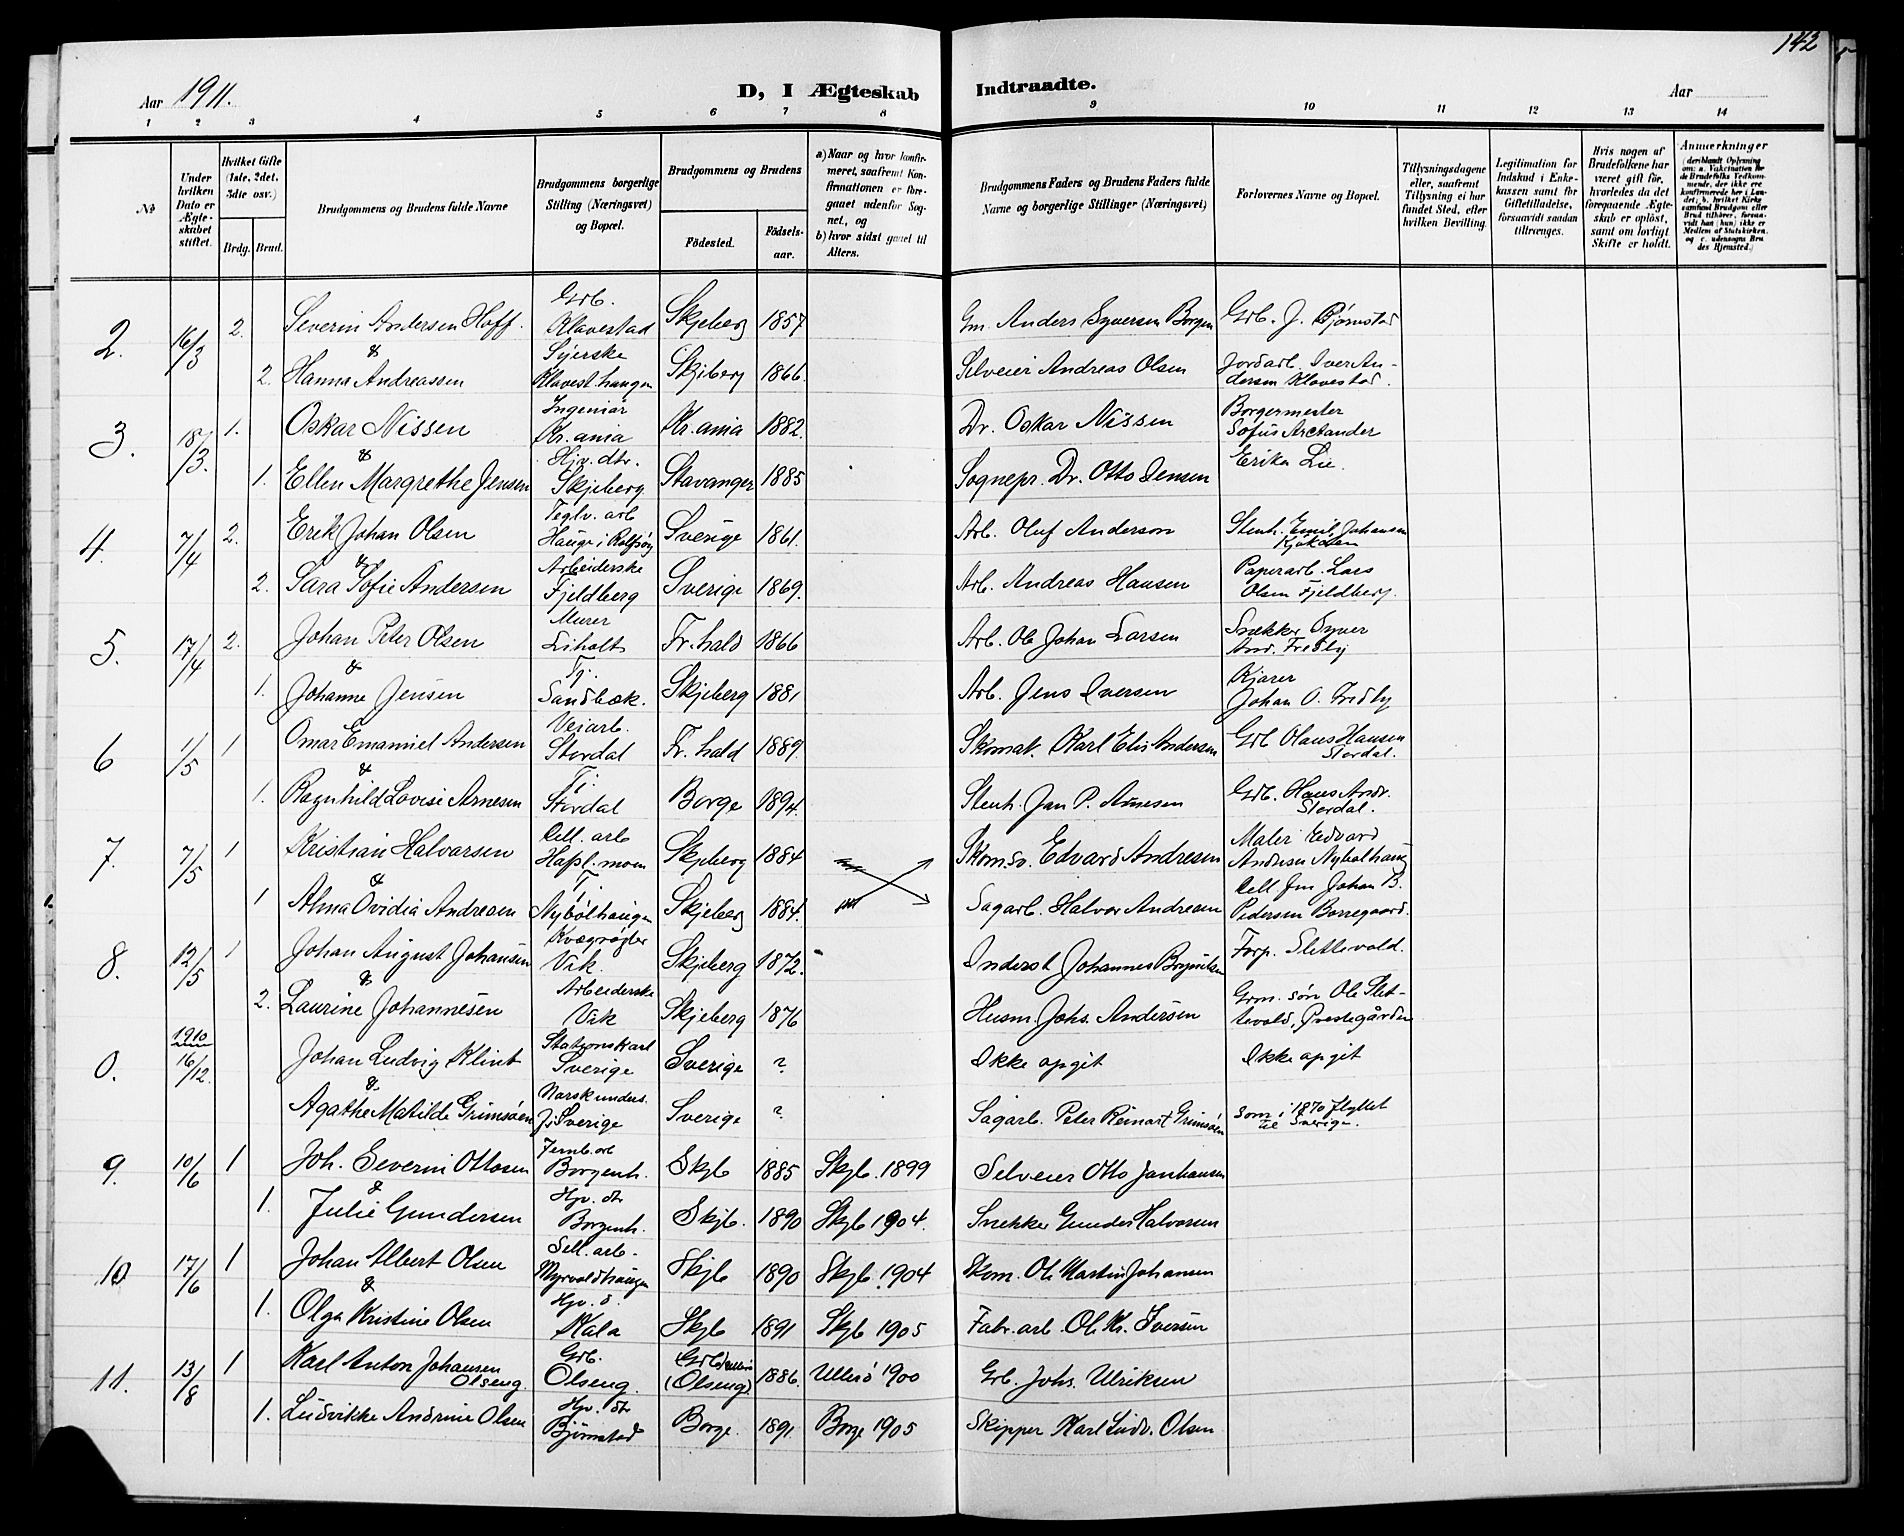 142
Aar 1911.
D, I Ægteskab Indtraadte.
Aar
1 2 3 4 5 6 7 8 9 10 11 12 13 14
№
Under hvilken Dato er Ægteskabet stiftet.
Hvilket Gifte (1ste, 2det, 3die osv.)
Brdg. Brud.
Brudgommens og Brudens fulde Navne
Brudgommens borgerlige Stilling (Næringsvei) og Bopæl.
Brudgommens og Brudens
Fødested. Fødselsaar.
a) Naar og hvor konfirmeret, saafremt Konfirmationen er foregaaet udenfor Sognet, og
b) hvor sidst gaaet til Alters.
Brudgommens Faders og Brudens Faders fulde Navne og borgerlige Stillinger (Næringsvei)
Forlovernes Navne og Bopæl.
Tillysningsdagene eller, saafremt Tillysning ei har fundet Sted, efter hvilken Bevilling.
Legitimation for Indskud i Enkekassen samt for Giftetilladelse, forsaavidt saadan tiltrænges.
Hvis nogen af Brudefolkene har været gift før, hvorledes da det foregaaende Ægteskab er opløst, samt om lovligt Skifte er holdt.
Anmærkninger
2. 16/3 2. Severin Andersen Hoff. Grb. Klavestad Skjeberg 1857 Gm. Anders Syversen Borgen Grb. J. Bjørnstad
&
2. Hanna Andreassen Syerske Klavest.haugen Skjeberg 1866. Selveier Andreas Olsen Jordarb. Iver Andersen Klavestad.
3. 18/3. 1. Oskar Nissen Ingeniør Kr.ania Kr.ania 1882. Dr. Oskar Nissen Borgermester Sofus Arctander
&
1. Ellen Margrethe Jensen Hjv. dtr. Skjeberg Stavanger 1885 Sognepr. Dr. Otto Jensen Erika Lie.
4. 7/4 2. Erik Johan Olsen Teglv. arb Hauge i Rolfsøy Sverige 1861. Arb. Oluf Anderson Stenh. Emil Johansen
&
2. Sara Sofie Andersen Arbeiderske Fjeldberg Sverige 1869. Arb. Andreas Hansen Paperarb. Lars Olsen Fjeldberg.
5. 17/4 2. Johan Peter Olsen Murer Liholt Fr.hald 1866 Arb. Ole Johan Larsen Snekker Syver And. Fredby
&
1. Johanne Jensen Tj. Sandbæk. Skjeberg 1881 Arb. Jens Iversen Kjører Johan O. Fredby
6 1/5 1 Omar Emanuel Andersen Veiarb. Stordal Fr.hald 1889. Skomak. Karl Elis Andersen Grb Olaus Hansen Stordal.
&
1. Ragnhild Lovise Arnesen Tj. Stordal Borge 1894. Stenh. Jan P. Arnesen Grb. Hans Andr. Stordal.
7. 7/5 1 Kristian Halvorsen Cell. arb Hapl.moen Skjeberg 1884 Skom.sv. Edvard Andresen Maler Edvard Andresen Nybølhaug
&
1 Alma Ovidia Andresen Tj. Nybølhaugen Skjeberg 1884. Sagarb. Halvor Andresen Cell. fm Johan B. Pedersen Borregaard.
8. 12/5 1 Johan August Johansen Kvægrøgter Vik. Skjeberg 1872. Inderst Johannes Brynildsen Forp. Slettevold.
&
2. Laurine Johannesen Arbeiderske Vik Skjeberg 1876 Husm. Johs. Andersen Grm. søn Ole Slettevold, Prestegården
0. 1910 16/12. Johan Ludvig Klint Stationskarl Sverige Sverige ? Ikke opgit Ikke opgit
&
Agathe Matilde Grimsøen Norsk unders. J. Sverige Sverige ? Sagarb. Peter Reinart Grimsøen som i 1870 flyttet til Sverige.
9. 10/6 1 Joh. Severin Ottosen Jernb.arb Borgenh. Skjb 1885 Skjb. 1899 Selveier Otto Janhansen
&
1. Julie Gundersen Hjv. dtr Borgenh. Skjb. 1890 Skjb 1904. Snekker Gunder Halvorsen
10 17/6 1 Johan Albert Olsen Sell. arb. Myrvoldhaugen Skjb 1890 Skjb. 1904 Skom. Ole Martin Johansen
&
1. Olga Kristine Olsen Hjv. d. Kala Skjb 1891 Skjb 1905 Fabr. arb. Ole Kr. Iversen
11. 13/8 1 Karl Anton Johansen Olseng. Grb. Olseng. (Olseng) 1886. Ullerø 1900 Grb. Johs. Ulriksen
1. Ludvikke Andrine Olsen Hjv. dtr Bjørnstad Borge. 1891 Borge 1905 Skipper Karl Ludv. Olsen